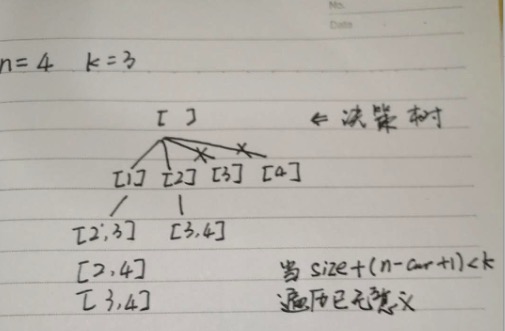 No.
Date
n=4 k=3
[ ] ← 决策树
[1] [2] [3] [4]
[2,3] [3,4]
[2,4] 当 size+(n-cur+1)<k
[3,4] 遍历已无意义